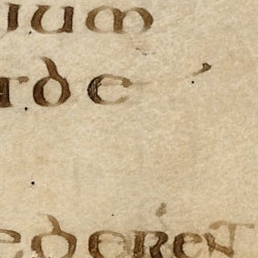 ium
rde
ederent